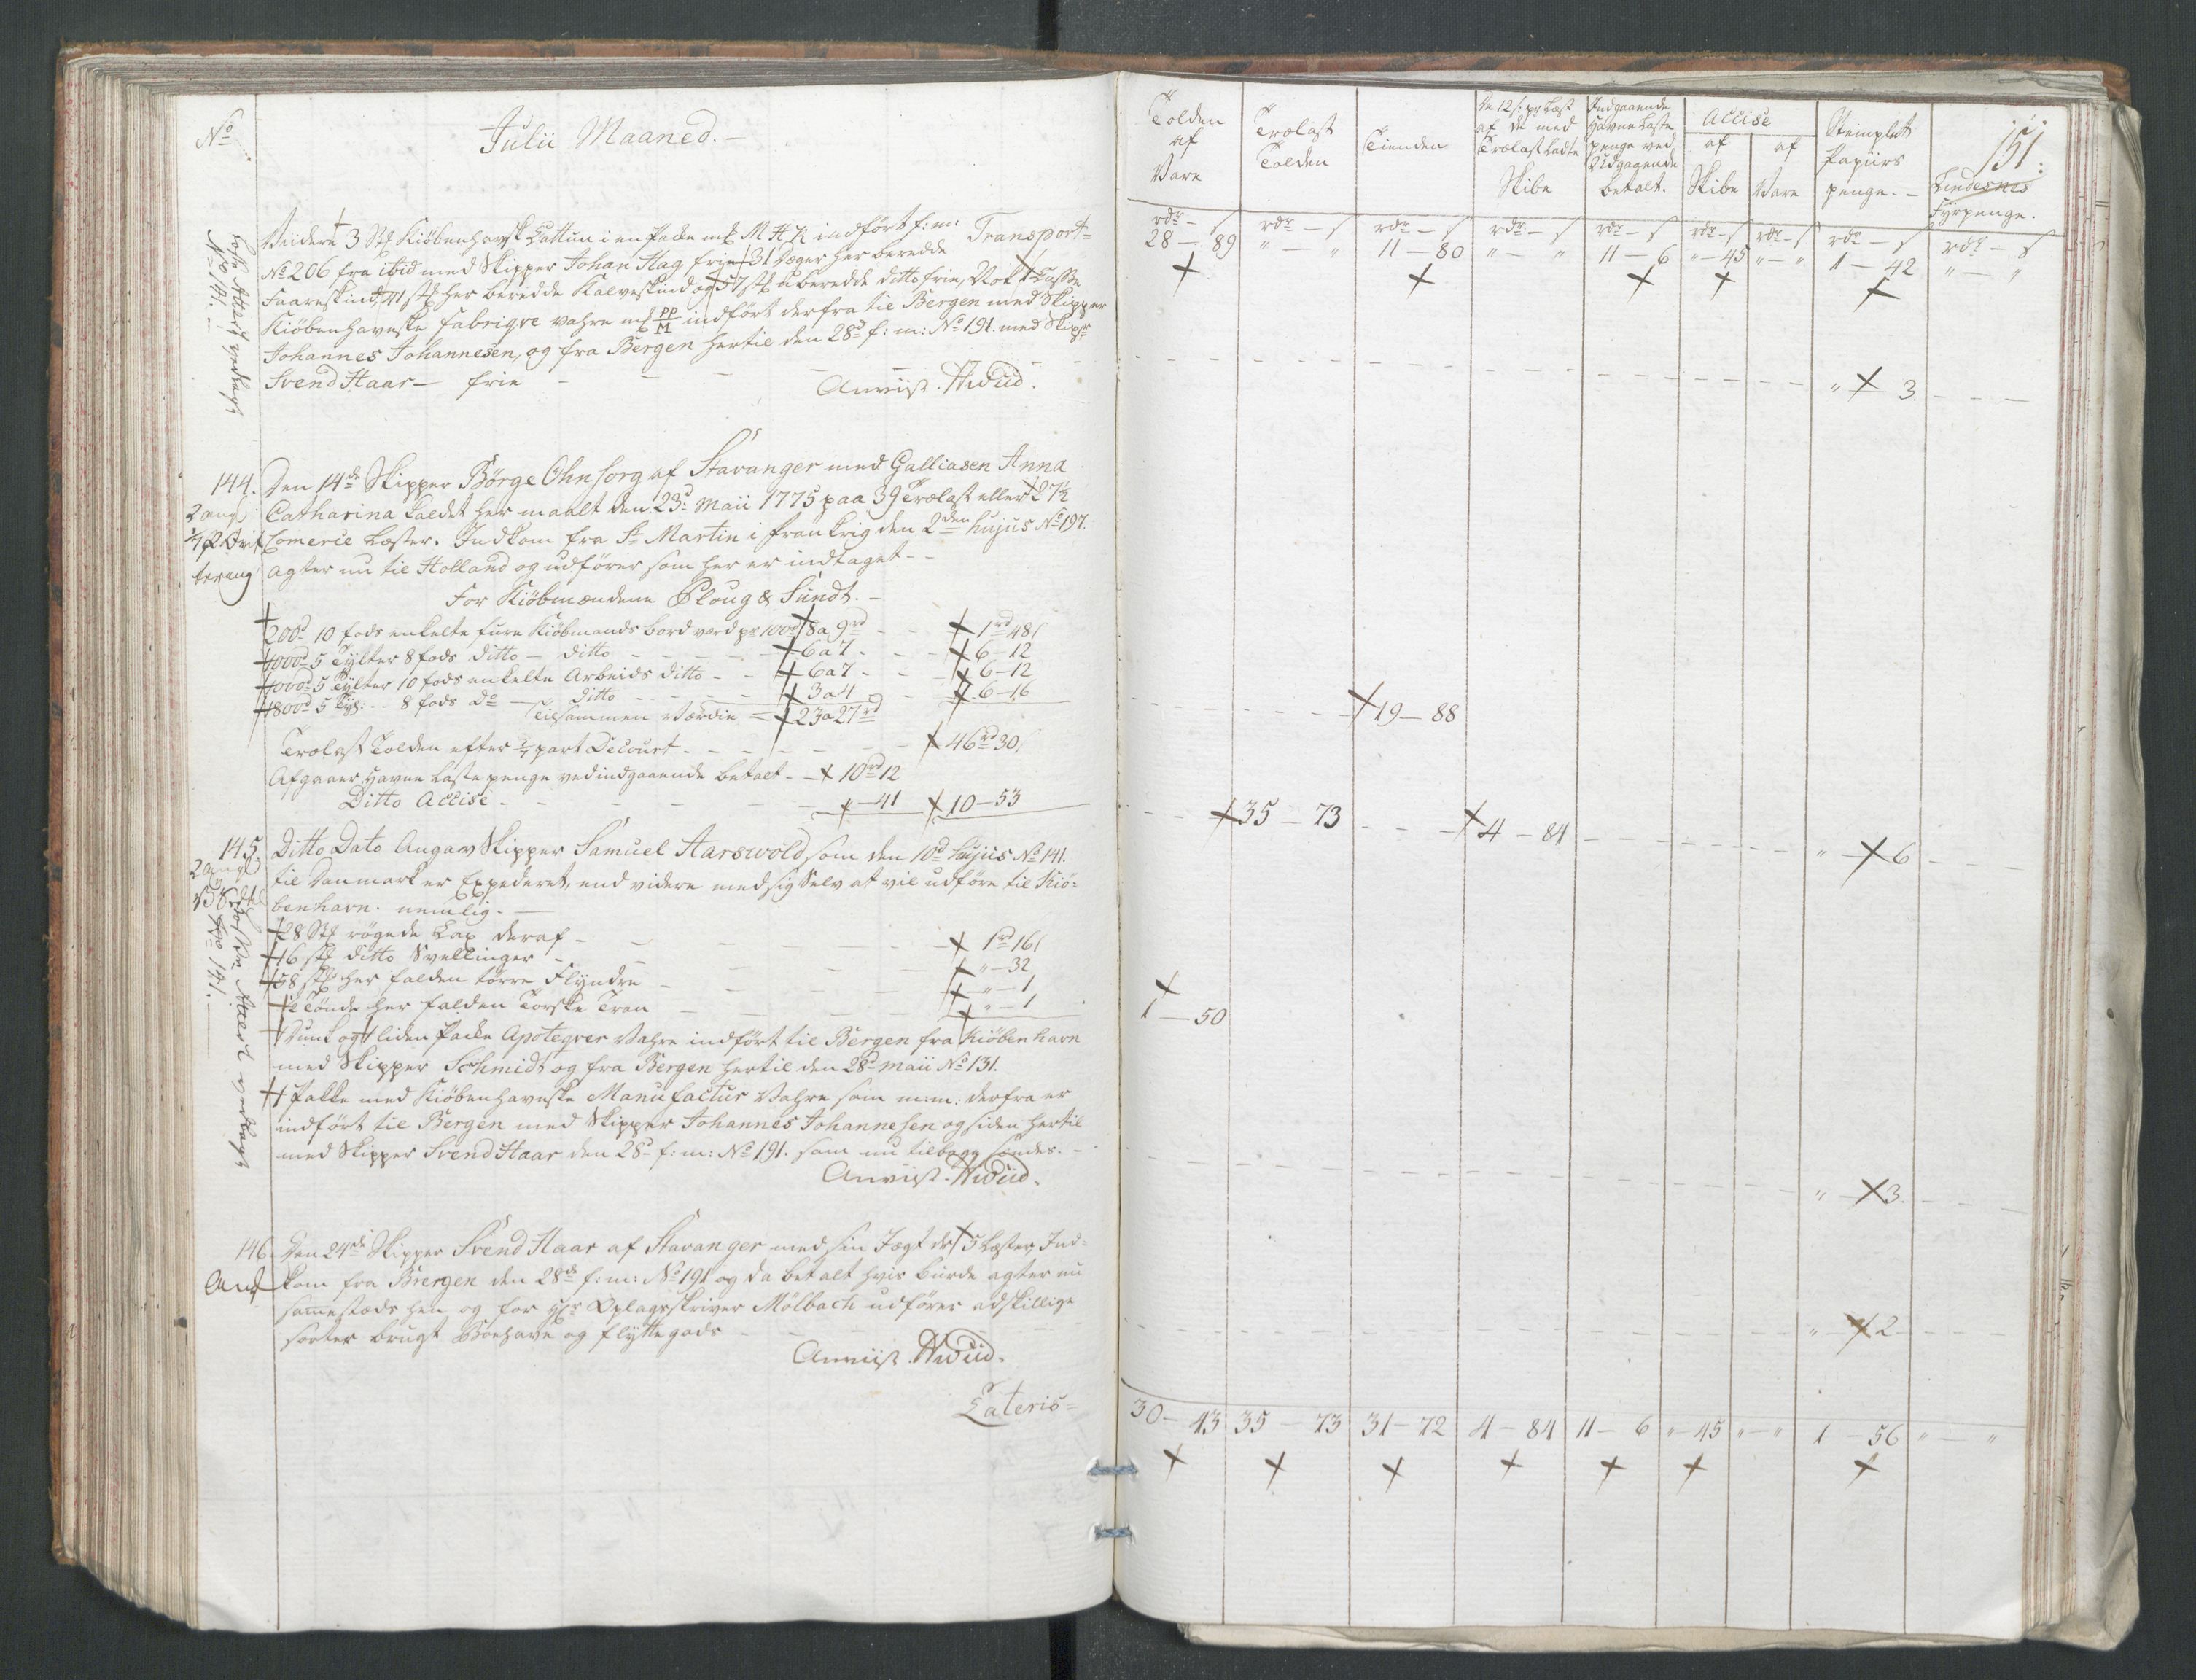 No
Julii Maaned. —
Viidere 3 Stk Kiöbenhavsk Cattun i en Packe mk M H K indfört f: m:
Transport=
No 206 fra ibid med Skipper Johan Hag frie 31 Deger her beredde
Faareskind, 41 stk her beredde Kalveskind og 57 stk uberedde ditto frie, Nok 1 Kasse
Kiöbenhavske Fabriqve Vahre mk PP/M indfört derfra til Bergen med Skipper
Johannes Johannesen, og fra Bergen hertil den 28d f: m: No 191. med Skipr
Svend Haar — frie
Anviist. HWiid.
No 141. —
144. Den 14de Skipper Börge Ohnsorg af Stavanger med Galliasen Anna
Catharina kaldet her maalt den 23d Maii 1775 paa 39 Trælast eller 27½
Comerce Læster. Indkom fra St Martin i Frankrig den 2den hujus No 197.
agter nu til Holland og udförer som her er indtaget —
For Kiöbmændene Ploug & Sundt. —
200d 10 fods enkelte furu Kiöbmands bord værd pr 100d 8 a 9rd — 1rd 48s
1000d 5 Tylter 8 fods ditto — ditto — 6 a 7 — 6 — 12
1000d 5 Tylter 10 fods enkelte Arbeids ditto — 6 a 7 — 6 — 12
1800d 5 Tyl: — 8 fods do — ditto — 3 a 4 — 7. 6 — 16
Tilsammen Værdie = 23 a 27rd
Trælast Tolden efter ¼ part Decourt — 46rd 30s
Afgaaer Havne Laste penge ved indgaaende betalt — 10rd 12
Ditto Accise — 41 10 — 53
145. Ditto Dato Angav Skipper Samuel Aarswold som den 10d hujus No 141.
til Danmark er Expederet, end videre med sig selv at vil udföre til Kiö=
benhavn. nemlig. —
28 Stk rögede Lax deraf — 1rd 16s
16 stk ditto Svellinger — " — 32
58 stk her falden törre Flyndre — " — 1
½ Tönde her falden Torske Tran — " — 1
1 Dunk og 1 liden Packe Apoteqver Vahre indfört til Bergen fra Kiöbenhavn
med Skipper Schmidt og fra Bergen hertil den 28d Maii No 131.
1 Pakke med Kiöbenhavske Manufactur Vahre som m: m: derfra er
indfört til Bergen med Skipper Johannes Johannesen og siden hertil
med Skipper Svend Haar den 28d f: m: No 191. som nu tilbage sendes. —
Anviist. HWiid.
No 141. —
146. Den 24de Skipper Svend Haar af Stavanger med sin Jægt dr 5 Læster, Ind=
kom fra Bergen den 28de f: m: No 191 og da betalt hvis burde agter nu
sammestæds hen og for Hr Oplagsskriver Mölbach udförer adskillige
sorter brugt Boehave og flytte gods
Anviist. HWiid.
Lateris =
Tolden af Vare
Trælast Tolden
Tienden
De 12 s: pr Læst af de med Trælast ladte Skibe
Indgaaende Havne Laste penge ved Udgaaende betalt.
Accise
af Skibe
af Vare
Stemplet Papiirs penge. —
151.
Lindesnes Fyrpenge.
rdr — s rdr — s rdr — s rdr — s rdr — s rdr — s rdr — s rdr — s rdr — s
28 — 89 " — " 11 — 80 " — " 11 — 6 " — 45 " — " 1 — 42 " — "
" — 3
19 — 88
35 — 73 4 — 84 " — 6
1 — 50
" — 3.
" — 2
30 — 43 35 — 73 31 — 72 4 — 84 11 — 6 " — 45 " — " 1 — 56 " — "